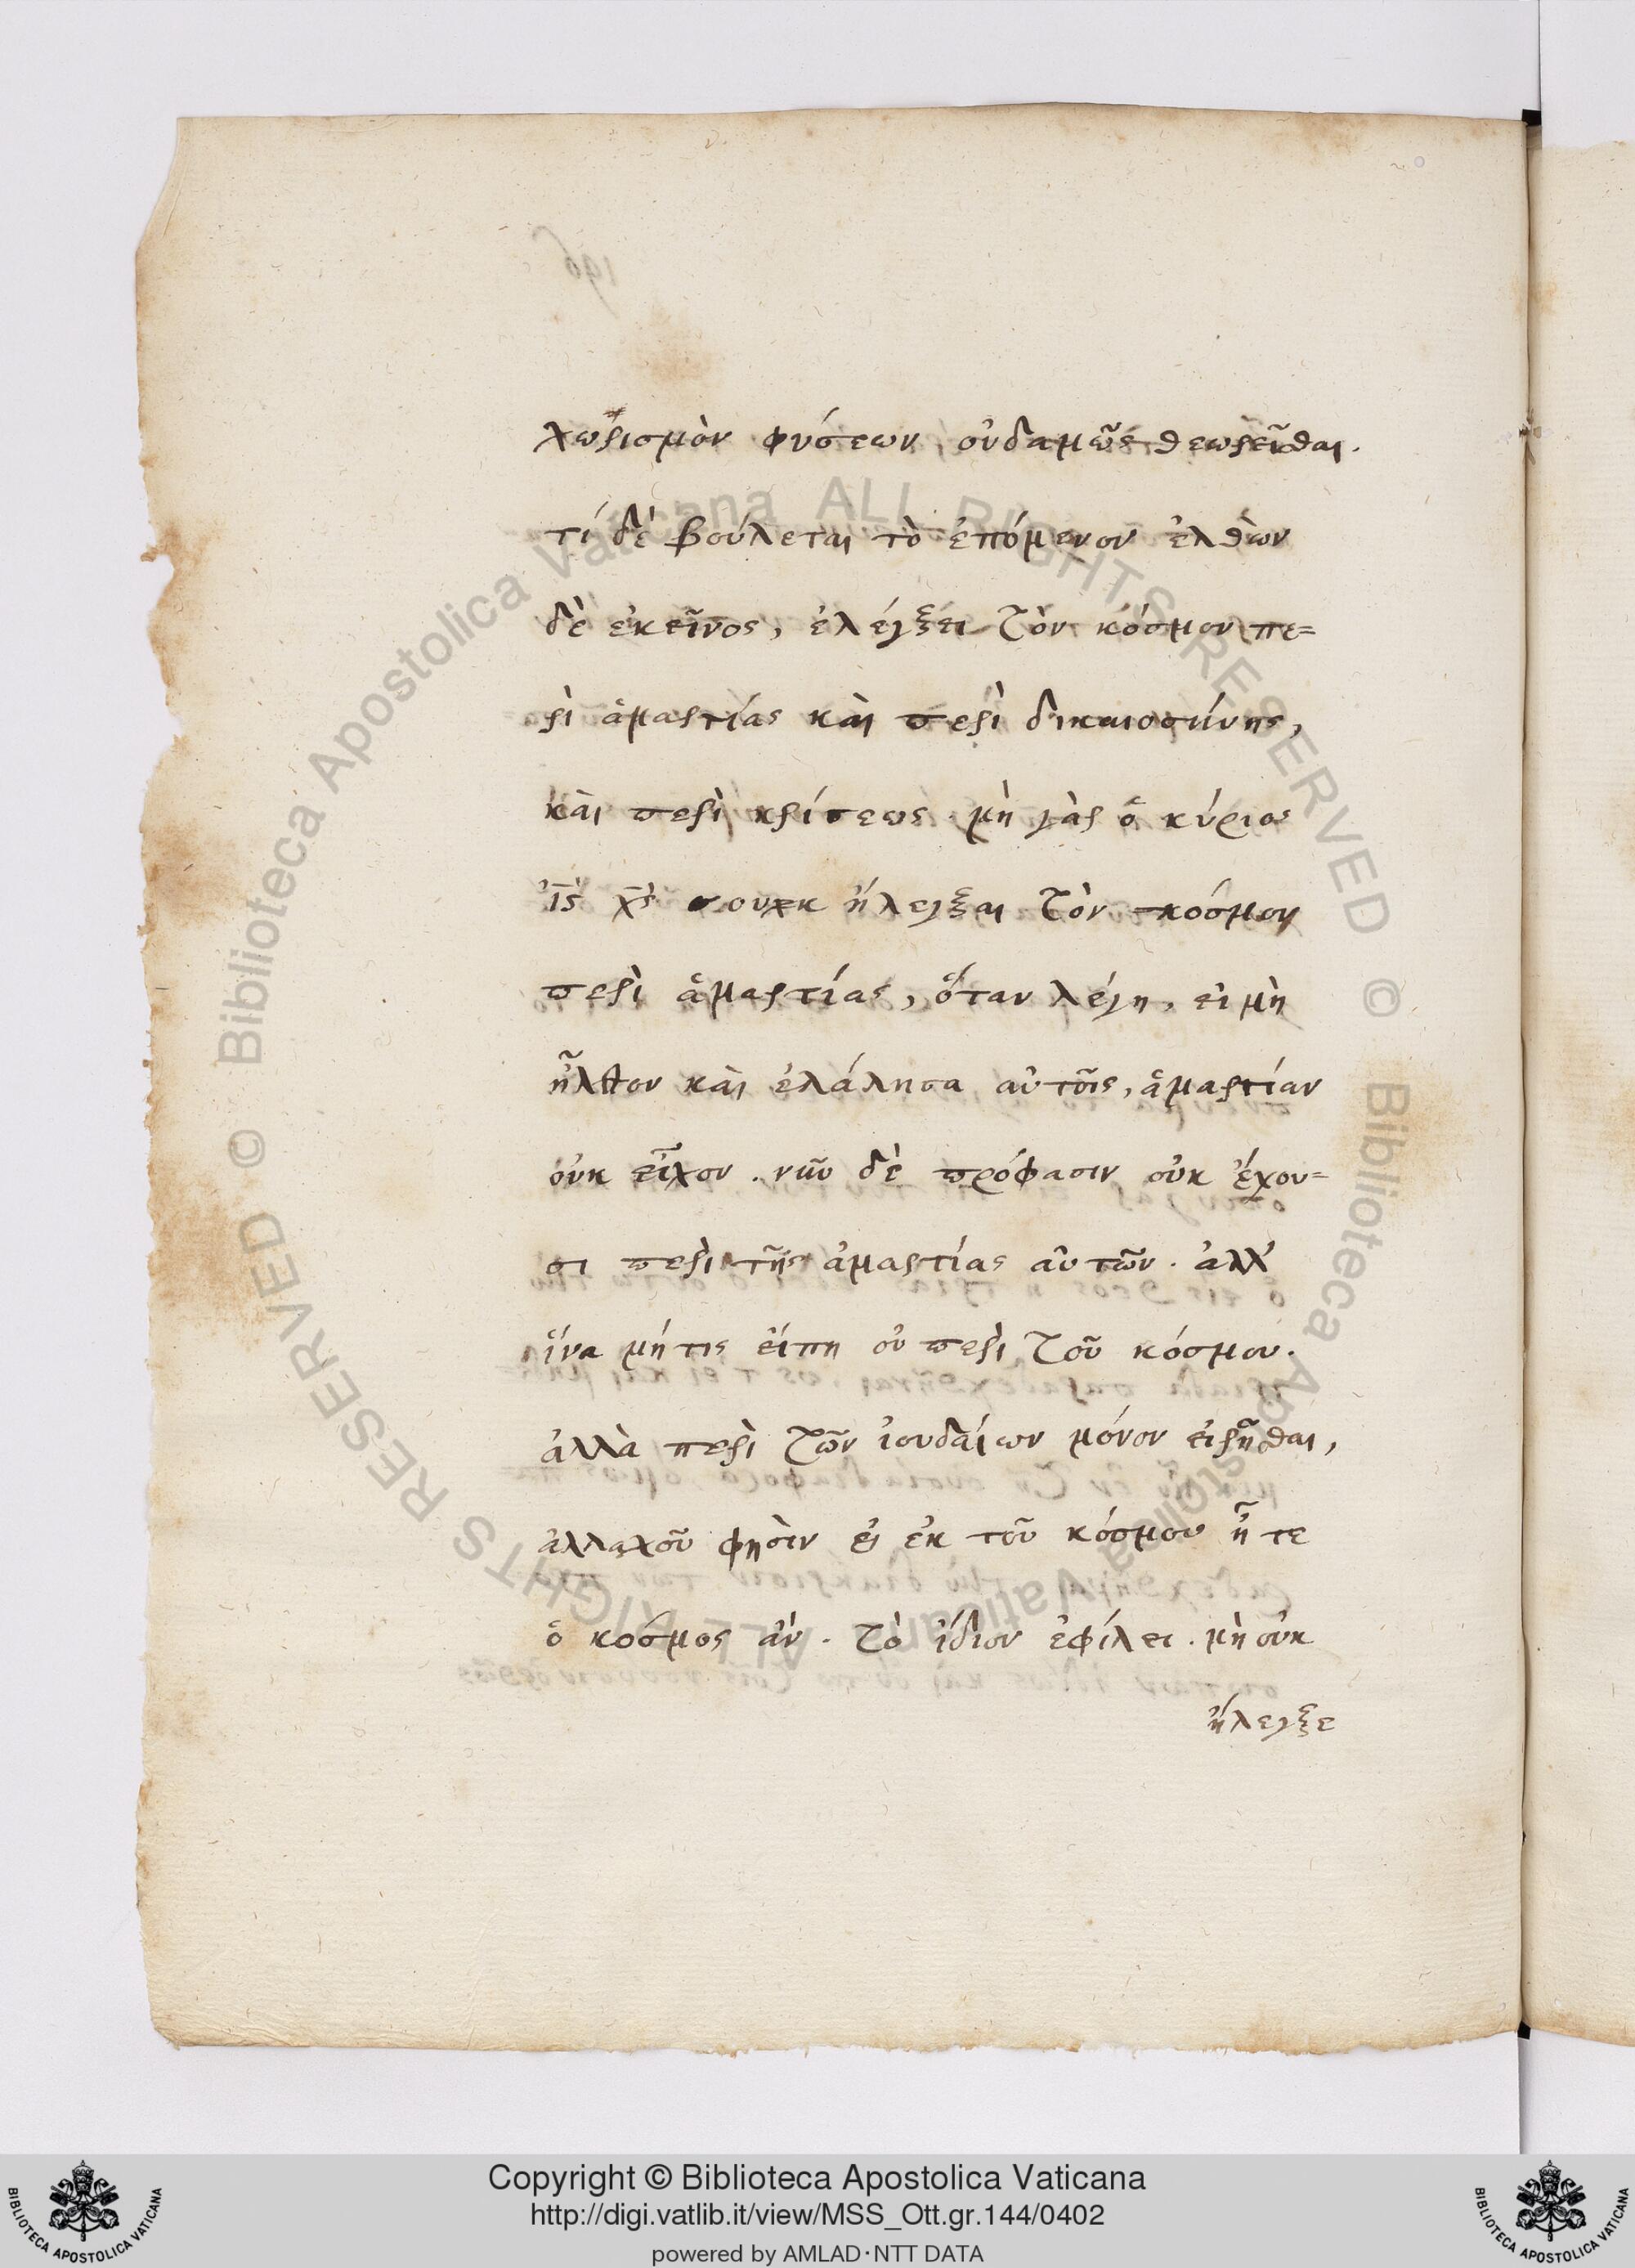 χωρισμὸν φύσεων, οὐδαμῶς θεωρεῖσθαι.
τί δὲ βούλεται τὸ ἑπόμενον ἐλθὼν
δὲ ἐκεῖνος, ἐλέγξει τὸν κόσμον πε=
ρὶ ἁμαρτίας καὶ περὶ δικαιοσύνης,
καὶ περὶ κρίσεως. μὴ γὰρ ὁ κύριος
ἰ̅ς̅ χ̅ς̅ οὐκ ἤλεγξαι τὸν κόσμον
περὶ ἁμαρτίας, ὅταν λέγη, εἰ μὴ
ἦλθον καὶ ἐλάλησα αὐτοῖς, ἁμαρτίαν
οὐκ εἶχον. νῦν δὲ πρόφασιν οὐκ ἔχου=
σι περὶ τῆς ἁμαρτίας αὐτῶν. ἀλλ'
ἵνα μή τις εἴπη οὐ περὶ τοῦ κόσμου.
ἀλλὰ περὶ τῶν ἰουδαίων μόνον εἰρῆσθαι,
ἀλλαχοῦ φησὶν εἰ ἐκ τοῦ κόσμου ἦτε
ὁ κόσμος ἂν. τὸ ἴδιον ἐφίλει. μὴ οὐκ
ἤλεγξε
Copyright © Biblioteca Apostolica Vaticana
http://digi.vatlib.it/view/MSS_Ott.gr.144/0402
powered by AMLAD·NTT DATA
BIBLIOTECA APOSTOLICA VATICANA
BIBLIOTECA APOSTOLICA VATICANA
Biblioteca Apostolica Vaticana ALL RIGHTS RESERVED ©
Biblioteca Apostolica Vaticana ALL RIGHTS RESERVED ©